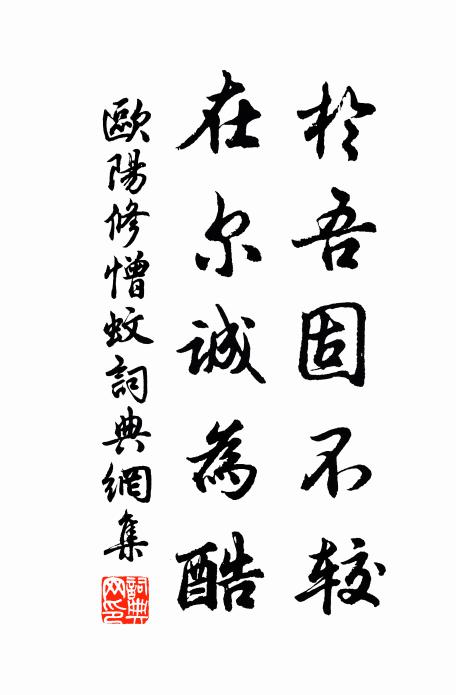 於吾固不较
在尔诚為酷
歐陽修憎蚊詞典網集
詞典網印